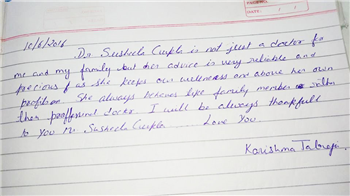 10/6/2016
Dr Susheela Gupta is not just a doctor for
me and my family but her advice is very reliable and
precious f as she keeps our wellness are above her own
profition. She always behaves like family member
then proffesional doctor. I will be always thankfull
to you Mr Susheela Gupta Love You
Karishma